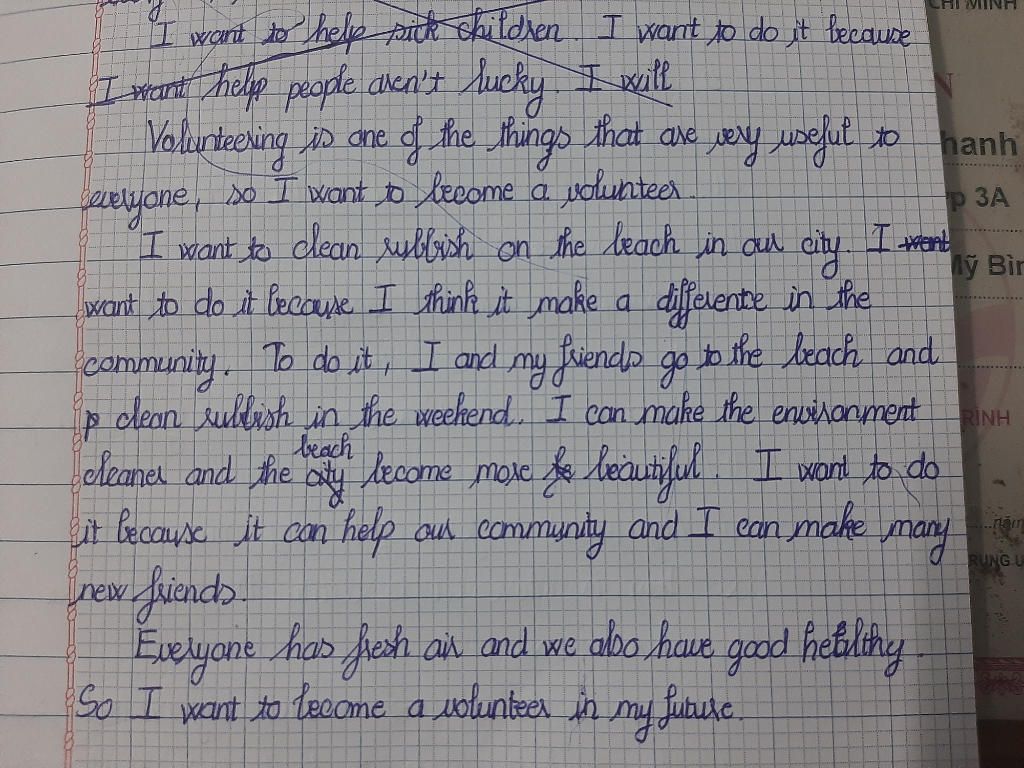 I want to help sick children. I want to do it because
I want help people aren't lucky. I will
Volunteering is one of the things that are very useful to
everyone, so I want to become a volunteer.
I want to clean rubbish on the beach in our city. I went
want to do it because I think it make a difference in the
community. To do it, I and my friends go to the beach and
p clean rubbish in the weekend. I can make the environment
beach
cleaner and the city become more be beautiful. I want to do
it because it can help our community and I can make many
new friends.
Everyone has fresh air and we also have good healthy.
So I want to become a volunteer in my future.
CHÍ MINH
N
hanh
p 3A
Mỹ Bìn
RÌNH
năm
RUNG U